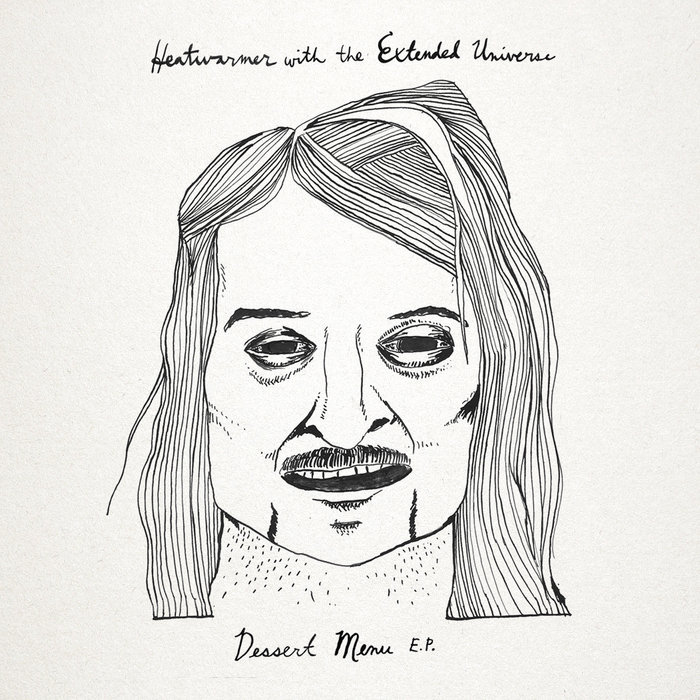 Heatwarmer with the Extended Universe
Dessert Menu E.P.